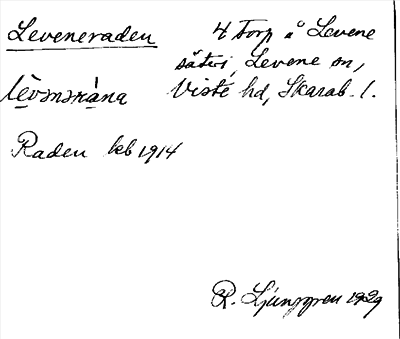 Leveneraden
4 torp å Levene
säteri, Levene sn,
Viste hd, Skarab. l.
lèvənəràna
Raden keb 1914
R. Ljunggren 1929